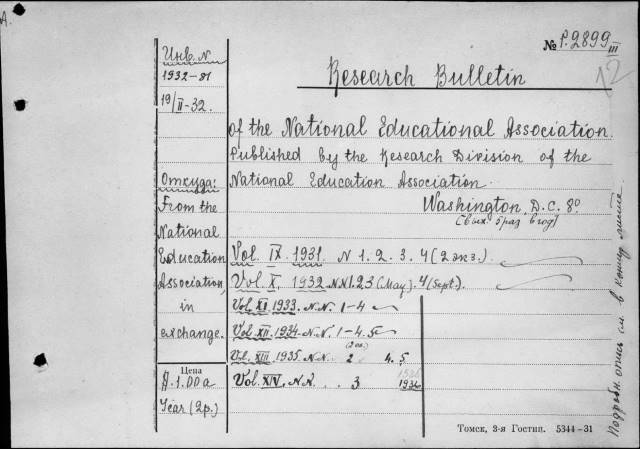 А.
№ P.2899
III
12
Research Bulletin
Инв. N
1932-81
19/II-32.
of the National Educational Association.
Published by the Research Division of the
National Education Association.
Washington, D.C. 8°
[Вых. 5 раз в год]
Откуда:
From the
National
Education
Association,
in
exchange.
Vol. IX. 1931. N 1. 2. 3. 4 (2 экз.).
Vol. X, 1932 N.N. 1. 2 3 (May). 4 (Sept.).
Vol. XI. 1933. N.N. 1-4
Vol. XII. 1934. N.N. 1-4. 5
Vol. XIII. 1935. N.N. 2 4. 5
Vol. XIV, N.N. 3 1936
Цена
1.00 a
Year (2р.)
Томск, 3-я Гостип. 5344-31
опись см. в конце